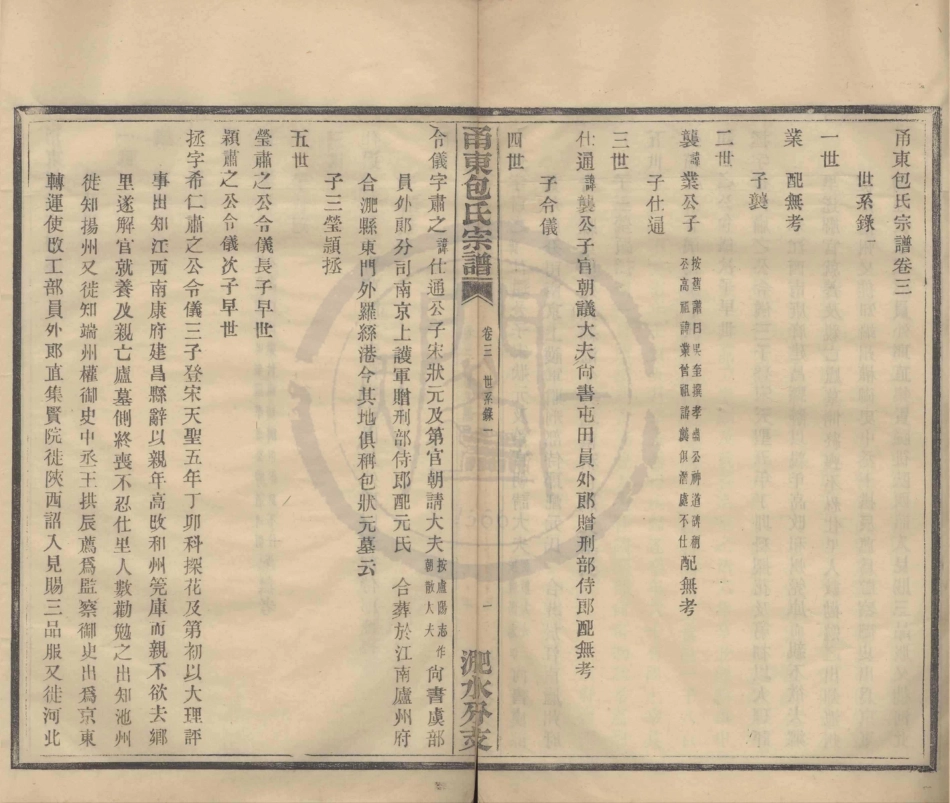 甬東包氏宗譜卷三
世系錄一
一世
業 配無考
子襲
二世
襲諱業公子按舊譜曰吳奎撰孝肅公神道碑稱公高祖諱業曾祖諱襲俱潛處不仕配無考
子仕通
三世
仕通諱襲公子官朝議大夫尙書屯田員外郎贈刑部侍郎配無考
子令儀
四世
甬東包氏宗譜 卷三 世系錄一 一 淝水分支
令儀字肅之諱仕通公子宋狀元及第官朝請大夫按廬陽志作朝散大夫尙書虞部
員外郎分司南京上護軍贈刑部侍郎配元氏 合葬於江南廬州府
合淝縣東門外羅絲港今其地俱稱包狀元墓云
子三瑩穎拯
五世
瑩肅之公令儀長子早世
穎肅之公令儀次子早世
拯字希仁肅之公令儀三子登宋天聖五年丁卯科探花及第初以大理評
事出知江西南康府建昌縣辭以親年高改和州筦庫而親不欲去鄉
里遂解官就養及親亡廬墓側終喪不忍仕里人數勸勉之出知池州
徙知揚州又徙知端州權御史中丞王拱辰薦爲監察御史出爲京東
轉運使改工部員外郎直集賢院徙陝西詔入見賜三品服又徙河北